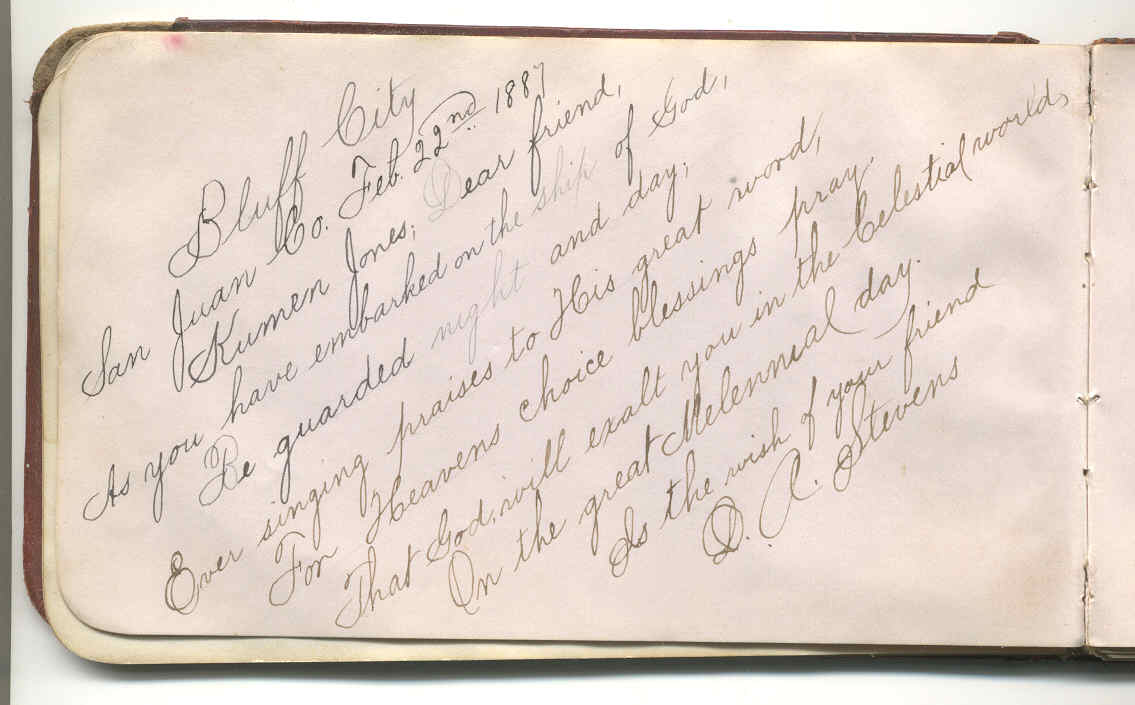 Bluff City
San Juan Co. Feb. 22nd 1887
Kumen Jones; Dear friend,
As you have embarked on the ship of God,
Be guarded night and day;
Ever singing praises to His great word,
For Heavens choice blessings pray.
That God, will exalt you in the Celestial worlds
On the great Melennial day.
Is the wish of your friend
D. A. Stevens